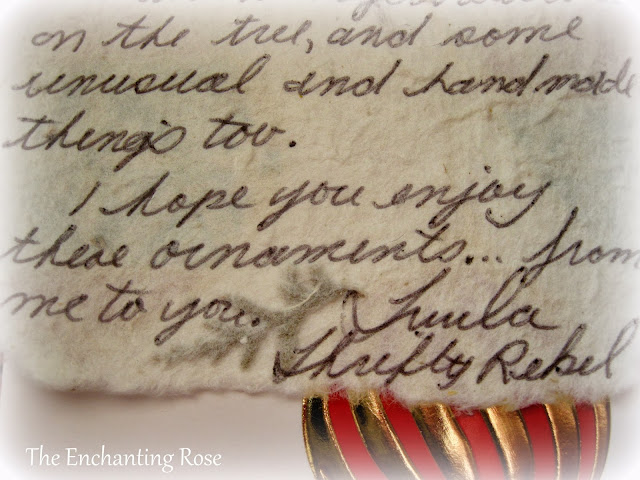 on the tree, and some
unusual and handmade
things too.
I hope you enjoy
these ornaments... from
me to you. Tuula
Thrifty Rebel
The Enchanting Rose